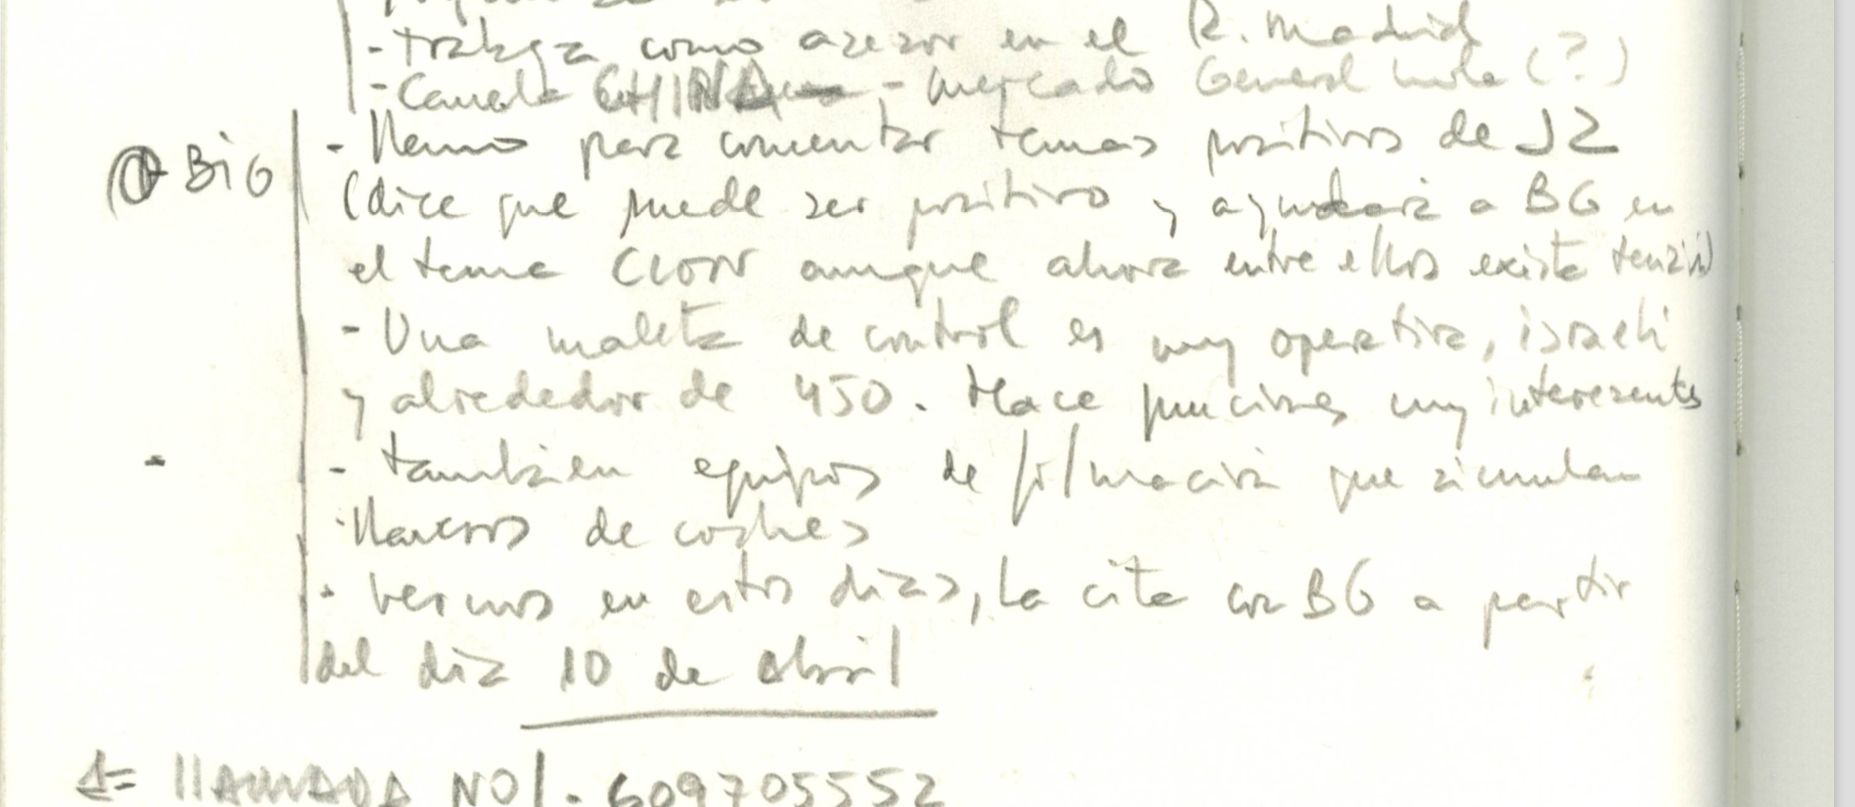 - trabaja como asesor en el R. Madrid
- Canal CHINA - mercado General (?)
BiG
- Llamo para comentar temas positivos de J2
(dice que puede ser positivo y ayudaría a BG en
el tema CLON aunque ahora entre ellos existe tensión)
- Una maleta de control es muy operativa, israeli
y alrededor de 450. Hace funciones muy interesantes
- también equipos de filmación que simulan
llaveros de coches
- vernos en estos días, la cita con BG a partir
del día 10 de abril
1= llAMADA NO1. 609705552